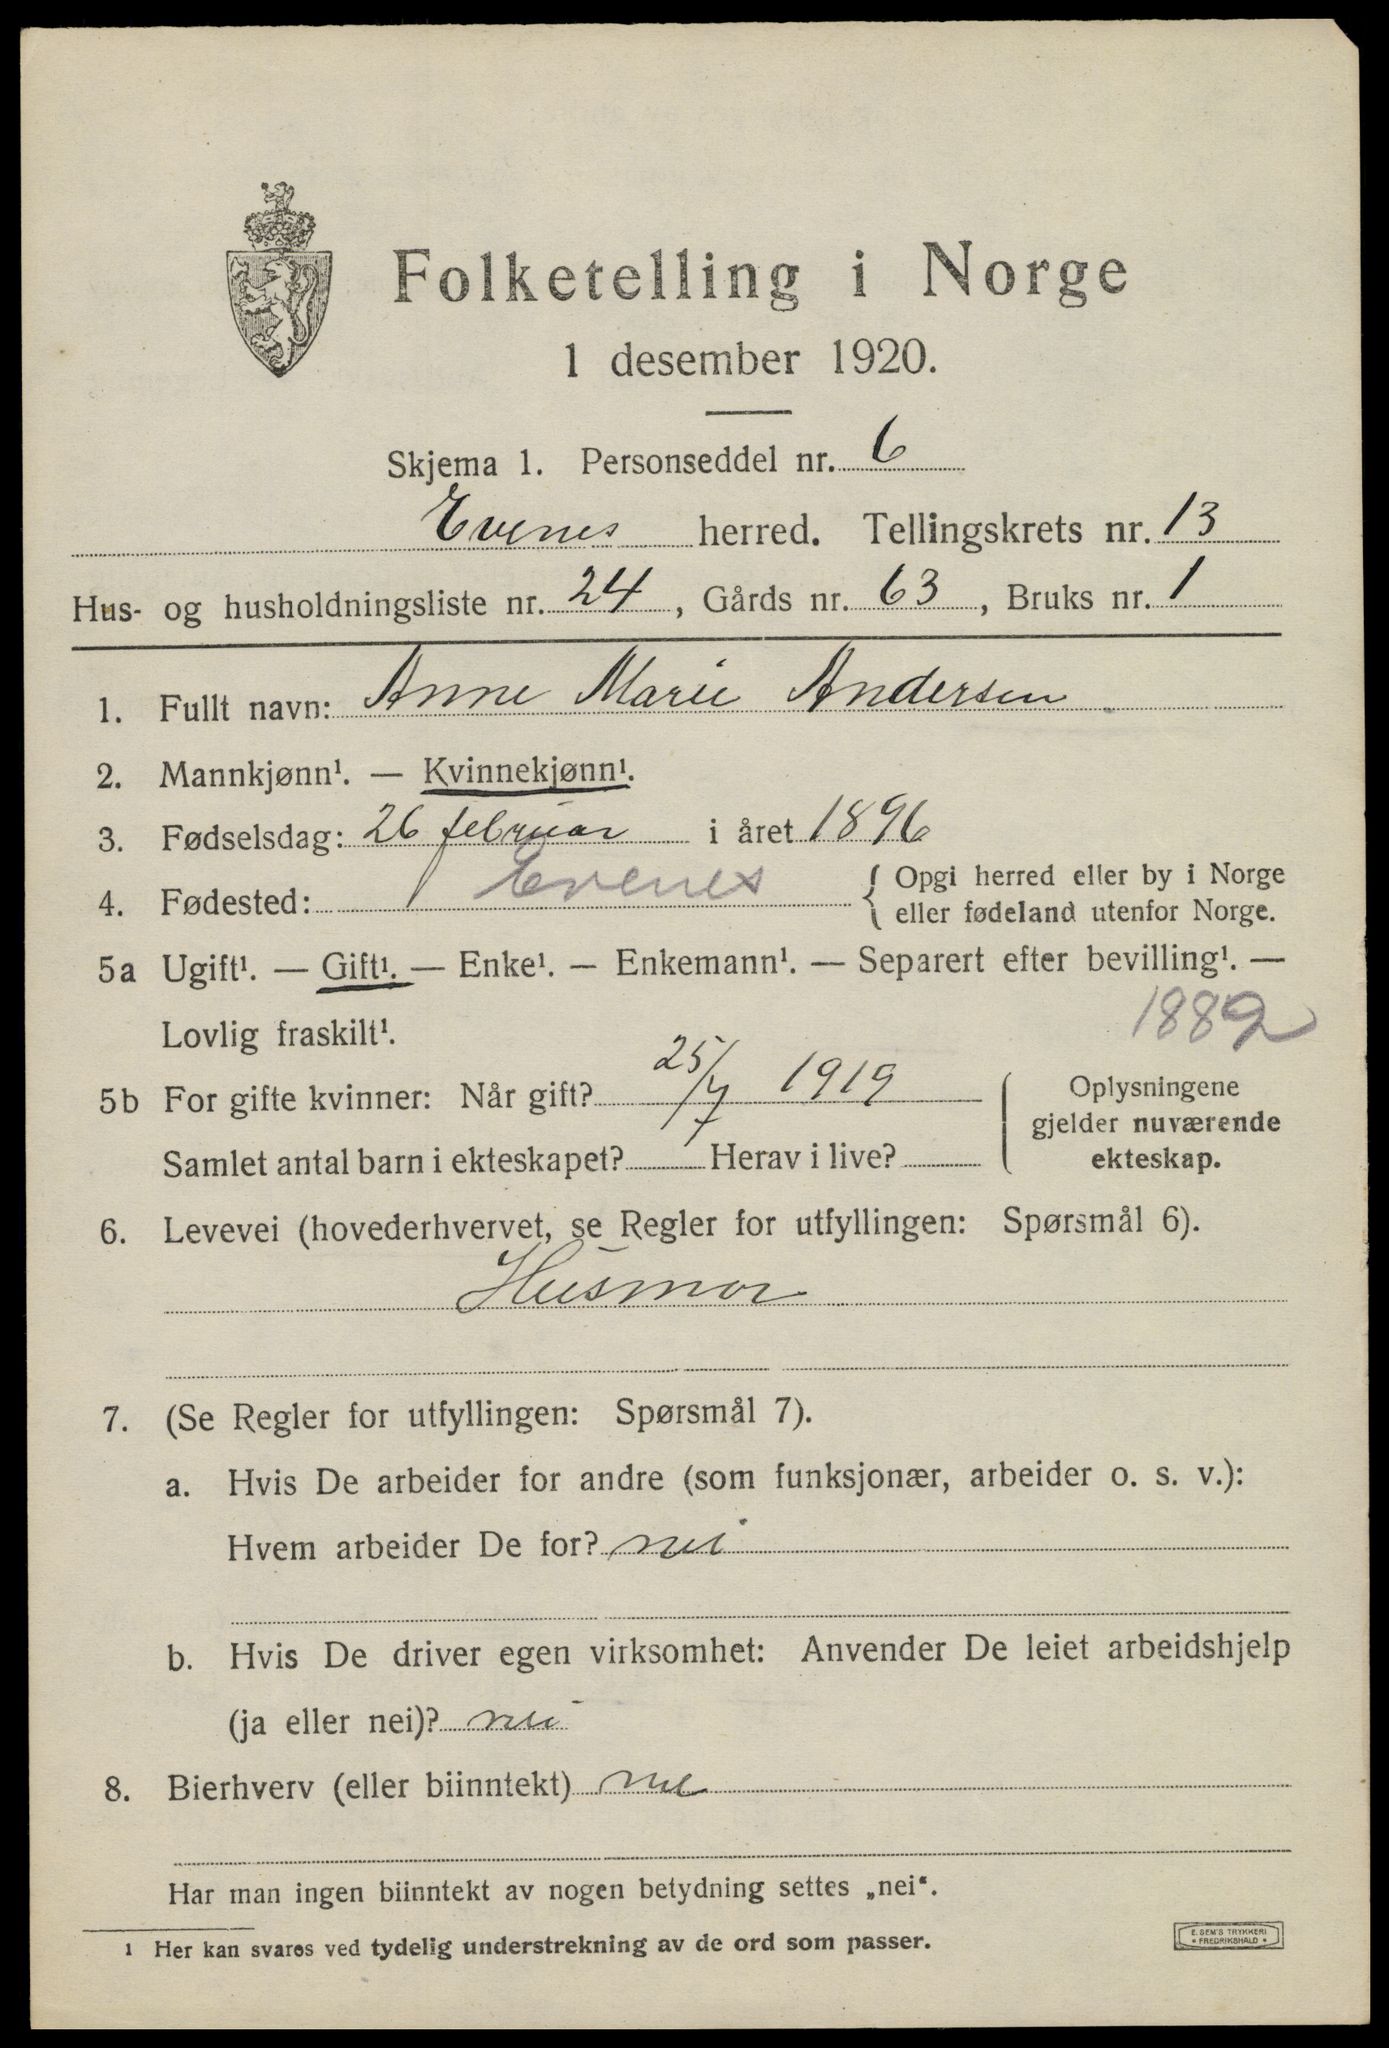 Folketelling i Norge
1 desember 1920.
Skjema 1. Personseddel nr. 6
Evenes herred. Tellingskrets nr. 13
Hus- og husholdningsliste nr. 24, Gårds nr. 63, Bruks nr. 1
1. Fullt navn: Anne Marie Andersen
2. Mannkjønn¹. — Kvinnekjønn¹.
3. Fødselsdag: 26 februar i året 1896
4. Fødested: Evenes { Opgi herred eller by i Norge
eller fødeland utenfor Norge.
5a Ugift¹. — Gift¹. — Enke¹. — Enkemann¹. — Separert efter bevilling¹. —
Lovlig fraskilt¹.
1882
5b For gifte kvinner: Når gift? 25/7 1919
Samlet antal barn i ekteskapet? Herav i live?
Oplysningene
gjelder nuværende
ekteskap.
6. Levevei (hovederhvervet, se Regler for utfyllingen: Spørsmål 6).
Husmor
7. (Se Regler for utfyllingen: Spørsmål 7).
a. Hvis De arbeider for andre (som funksjonær, arbeider o. s. v.):
Hvem arbeider De for? nei
b. Hvis De driver egen virksomhet: Anvender De leiet arbeidshjelp
(ja eller nei)? nei
8. Bierhverv (eller biinntekt) nei
Har man ingen biinntekt av nogen betydning settes „nei“.
1 Her kan svares ved tydelig understrekning av de ord som passer.
E. SEM'S TRYKKERI
• FREDRIKSHALD •